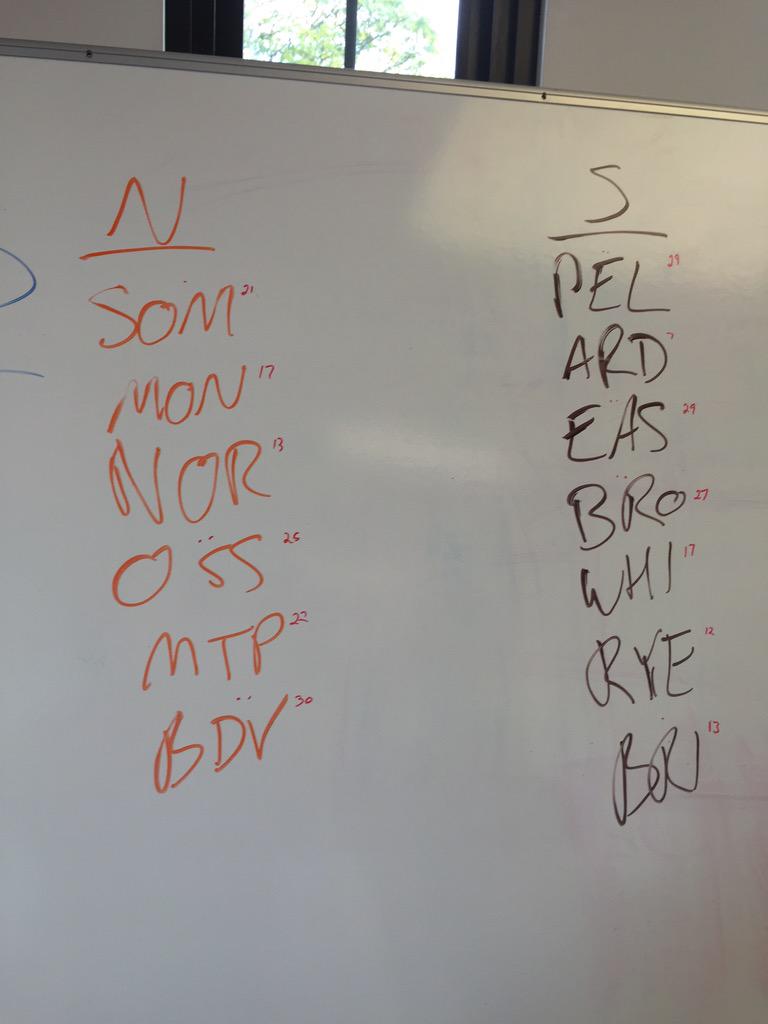 N
SOM 21
MON 17
NOR 13
OSS 25
MTP 22
BDV 30
S
PEL 29
ARD 7
EAS 29
BRO 27
WHI 17
RYE 12
BRI 13